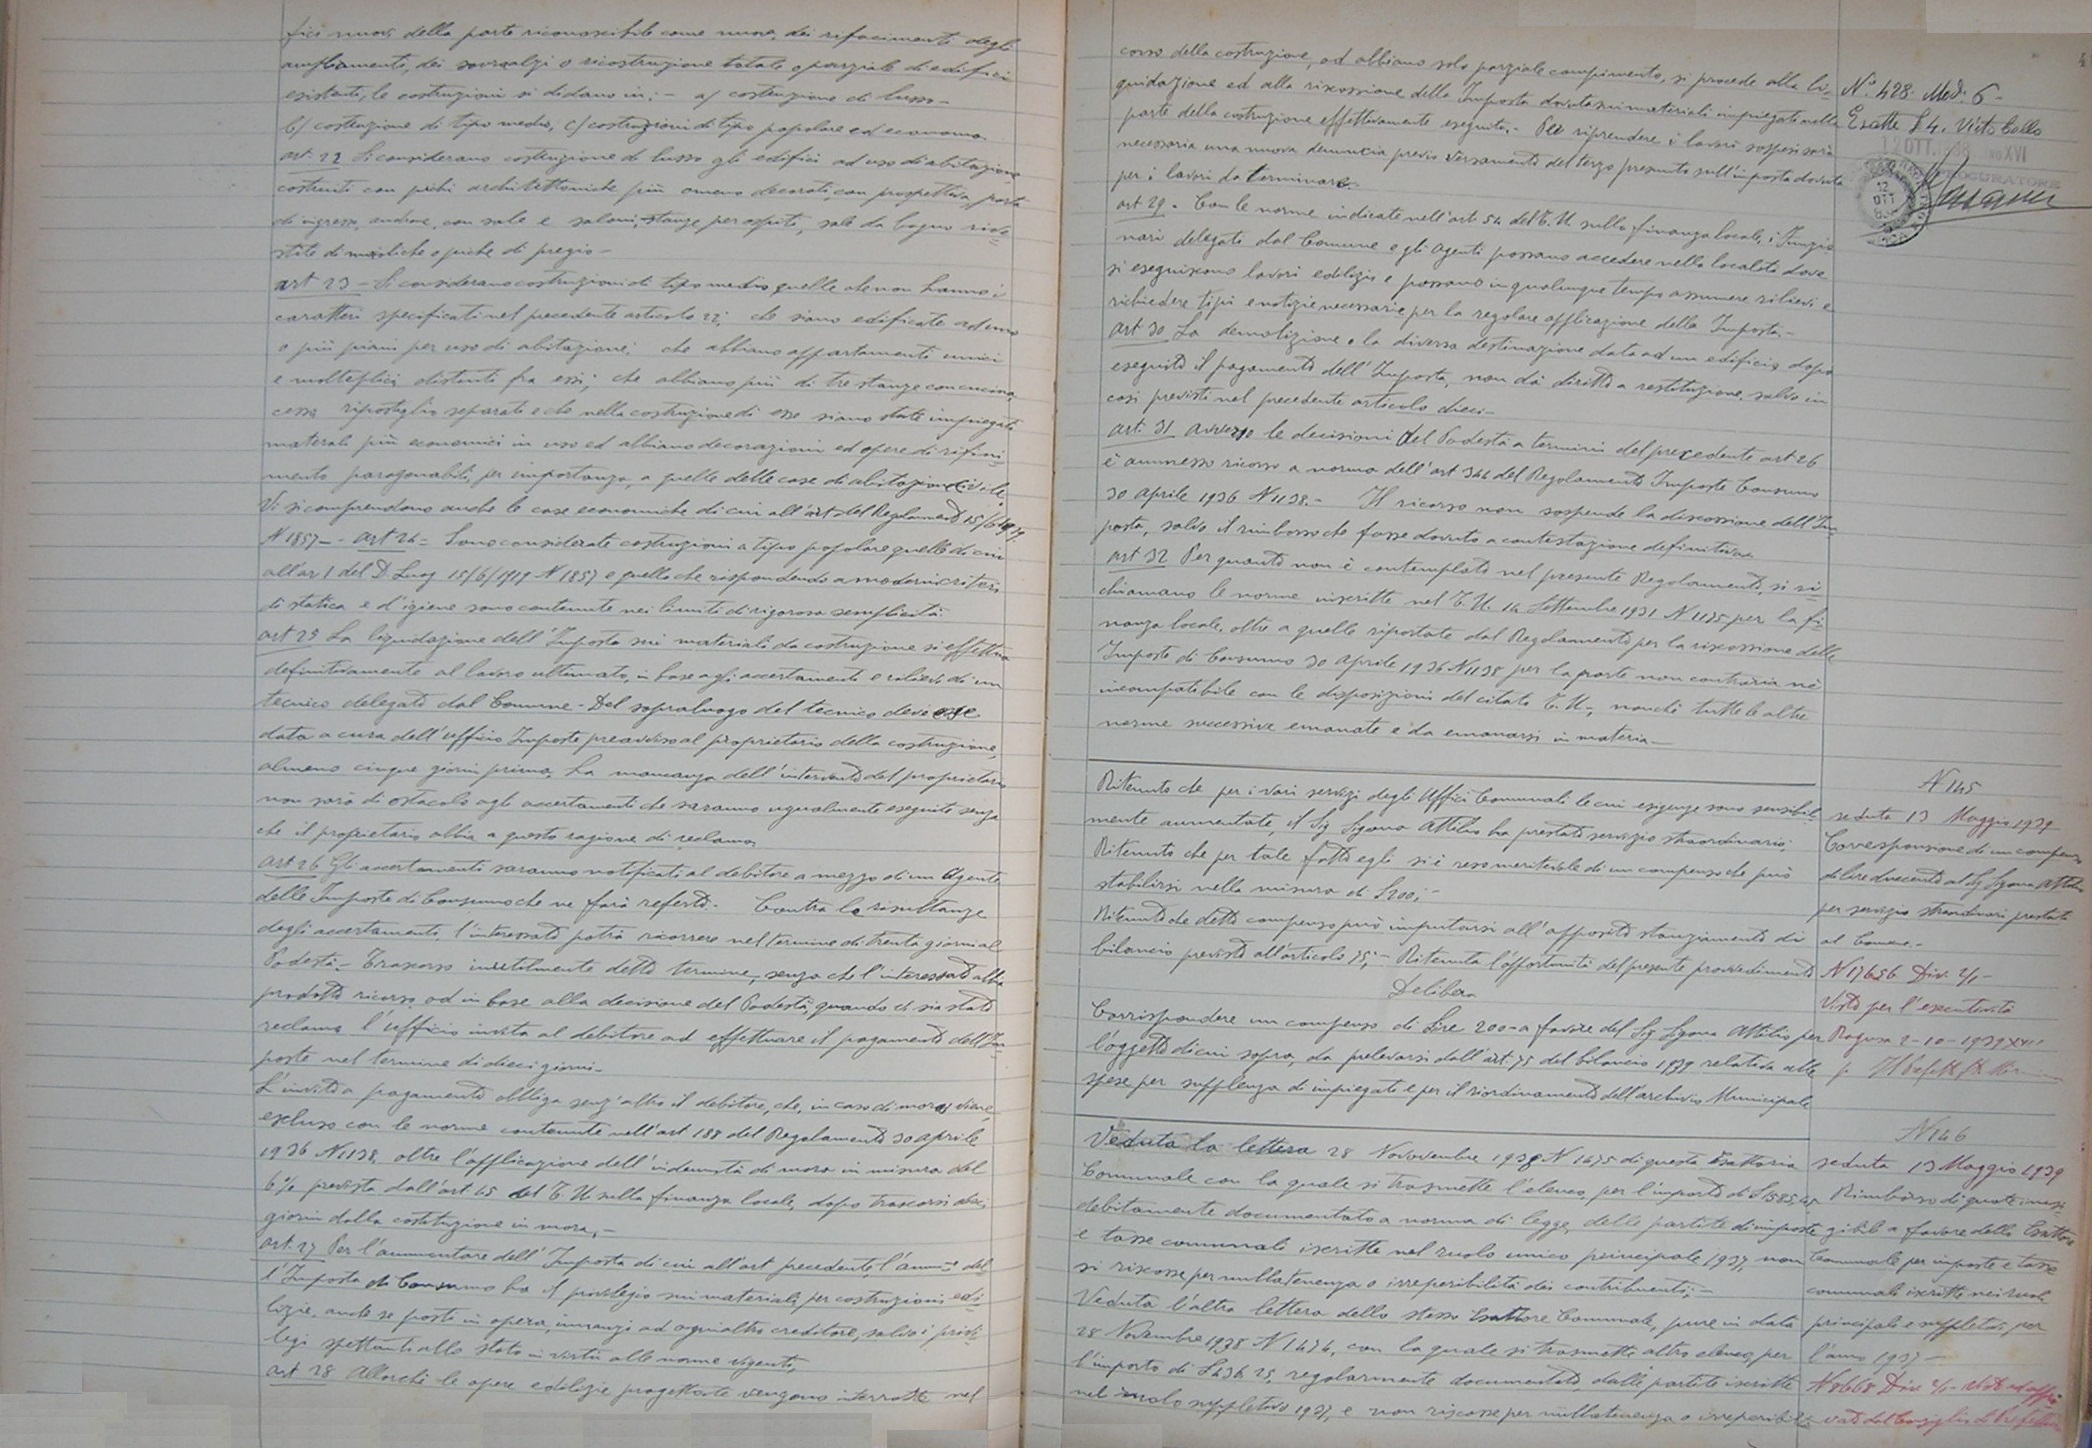 fici nuovi della parte riconoscibile come nuova, dei rifacimenti degli
ampliamenti, dei sovralzi o ricostruzione totale o parziale di edifici
esistenti, le costruzioni si dividano in: - a/ costruzione di lusso -
b/ costruzione di tipo medio, c/ costruzioni di tipo popolare ed economa.
art 22 Si considerano costruzione di lusso gli edifici ad uso di abitazione
costruiti con pochi architettoniche più o meno decorati, con prospettiva, porta
di ingresso, androne, con sale e saloni, stanze per ospiti, sale da bagno rive=
stite di maioliche o pietre di pregio -
art 23 - Si considerano costruzioni di tipo medio quelle che non hanno i
caratteri specificati nel precedente articolo 22; che siano edificate ad uno
o più piani per uso di abitazione; che abbiano appartamenti unici
e molteplici distinti fra essi; che abbiano più di tre stanze con cucina
cesso ripostiglio separati e che nella costruzione di esse siano stati impiegati
materiali più economici in uso ed abbiano decorazioni ed opere di rifini=
mento paragonabili, per importanza, a quelle delle case di abitazione civile.
Vi si comprendono anche le case economiche di cui all'art del Regolamento 15/6/1919
N 1857 - - art 24 = Sono considerate costruzioni a tipo popolare quelle di cui
all'art 1 del D. Luog 15/6/1919 N 1857 e quelle che rispondendo a moderni criteri
di statica e d'igiene sono contenute nei limiti di rigorosa semplicità.
art 25 La liquidazione dell'Imposta sui materiali da costruzione si effettua
definitivamente al lavoro ultimato, in base agli accertamenti e rilievi di un
tecnico delegato dal Comune - Del sopraluogo del tecnico deve esse
data a cura dell'ufficio Imposte preavviso al proprietario della costruzione,
almeno cinque giorni prima. La mancanza dell'intervento del proprietario
non sarà di ostacolo agli accertamenti che saranno ugualmente eseguiti senza
che il proprietario abbia a questo ragione di reclamo.
art 26 Gli accertamenti saranno notificati al debitore a mezzo di un Agente
delle Imposte di Consumo che ne farà referto. - Contra le risultanze
degli accertamenti, l'interessato potrà ricorrere nel termine di trenta giorni al
Podestà - Trascorso inutilmente detto termine, senza che l'interessato abbia
prodotto ricorso, od in base alla decisione del Podestà, quando ci sia stato
reclamo, l'ufficio invita al debitore ad effettuare il pagamento dell'Im=
poste nel termine di dieci giorni -
L'invito a pagamento obbliga senz'altro il debitore, che, in caso di mora, viene,
escluso con le norme contenute nell'art 188 del Regolamento 30 aprile
1936 N 1138, oltre l'applicazione dell'indennità di mora in misura del
6% prevista dall'art 45 del T. U sulla finanza locale, dopo trascorsi dieci
giorni dalla costituzione in mora, -
art. 27 Per l'ammontare dell'Imposta di cui all'art precedente, l'amm.ne del=
l'Imposta di Consumo ha il privilegio sui materiali per costruzioni edi=
lizie, anche se posti in opera, innanzi ad ogni altro creditore, salvo i privi=
legi spettanti allo stato in virtù alle norme vigenti,
art 28 Allorchè le opere edilizie progettate vengono interrotte nel
corso della costruzione, od abbiano solo parziale compimento, si procede alla li=
quidazione ed alla riscossione della Imposta dovuta sui materiali impiegati nella
parte della costruzione effettivamente eseguita. - Per riprendere i lavori sospesi sarà
necessaria una nuova denuncia previo versamento del terzo presunto sull'imposta dovuta
per i lavori da terminare.
art 29. Con le norme indicate nell'art 54 del T. U sulla finanza locale, i funzio
nari delegati dal Comune e gli agenti possono accedere nella località dove
si eseguiscono lavori edilizie e possono in qualunque tempo assumere rilievi e
richiedere tipi e notizie necessarie per la regolare applicazione della Imposta -
art 30 La demolizione o la diversa destinazione data ad un edificio dopo
eseguito il pagamento dell'Imposta, non dà diritto a restituzione, salvo in
casi previsti nel precedente articolo dieci -
art. 31 avverso le decisioni del Podestà a termini del precedente art 26
è ammesso ricorso a norma dell'art 344 del Regolamento Imposte Consumo
30 aprile 1936 N 1138. - Il ricorso non sospende la riscossione dell'Im=
posta, salvo il rimborso che fosse dovuto a contestazione definitiva
art 32 Per quanto non è contemplato nel presente Regolamento, si ri=
chiamano le norme inscritte nel T. U. 14 Settembre 1931 N 1175 per la fi=
nanza locale, oltre a quelle riportate dal Regolamento per la riscossione delle
Imposte di Consumo 30 aprile 1936 N 1138 per la parte non contraria nè
incompatibile con le disposizioni del citato T. U -, nonchè tutte le altre
norme successive emanate e da emanarsi in materia -
N° 428. Mod. 6 -
Esatte £ 4. Visto Bollo
12 OTT. 1938 ANNO XVI
PROCURATORE
12
OTT
Ritenuto che per i vari servizi degli Uffici Comunali le cui esigenze sono sensibil=
mente aumentate, il Sig Sgana Attilio ha prestato servizio straordinario:
Ritenuto che per tale fatto egli si è reso meritevole di un compenso che può
stabilirsi nella misura di £ 200; -
Ritenuto che detto compenso può imputarsi all'apposito stanziamento di
bilancio previsto all'articolo 75; - Ritenuta l'opportunità del presente provvedimento
Delibera
Corrispondere un compenso di Lire 200 - a favore del Sig Sgana Attilio per
l'oggetto di cui sopra, da prelevarsi dall'art. 75 del bilancio 1939 relativa alle
spese per supplenza di impiegati e per il riordinamento dell'archivio Municipale
N 145
seduta 13 Maggio 1939
Corresponsione di un compenso
di lire duecento al Sig Sgana Attilio
per servizio straordinari prestati
al Comune. -
N 17656 Div. 2/1 -
Visto per l'esecutività
Ragusa 2 - 10 - 1939 XVII
p. Il Prefetto
Veduta la lettera 28 Novovembre 1938 N 1475 di questa Esattoria
Comunale con la quale si trasmette l'elenco, per l'importo di £ 1585,45
debitamente documentato a norma di legge, delle partite di imposte
e tasse comunali iscritte nel ruolo unico principale 1937 non
si riscosse per nullatenenza o irreperibilità dei contribuenti; -
Veduta l'altra lettera dello stesso Esattore Comunale, pure in data
28 Novembre 1938 N 1474, con la quale si trasmette altro elenco, per
l'importo di £ 436 25 regolarmente documentato, delle partite iscritte
nel ruolo suppletivo 1937, e non riscosse per nullatenenza o irreperibili=
N 146
seduta 13 Maggio 1939
Rimborso di quote inesi=
gibili a favore dello Esattore
Comunale per imposte e tasse
comunali iscritte nei ruoli
principali e suppletivi per
l'anno 1937 -
N 8668 Div 2/1 - Visto ed appro
vato dal Consiglio di Prefettura